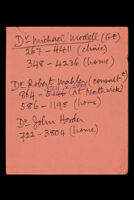 Dr Michael Modell (GP)
267-4411 (clinic)
348-4236 (home)
Dr Robert Mahler (consult
864- (at Northwick)
586-1198 (home)
Dr John Horder
722-3804 (home)